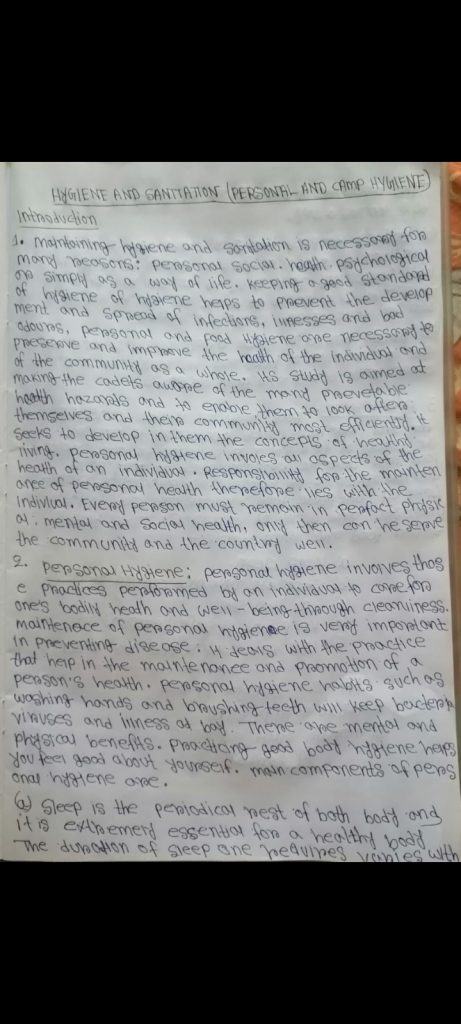 HYGIENE AND SANITATION (PERSONAL AND CAMP HYGIENE)
Introduction
1. maintaining hygiene and sanitation is necessary for
many reasons: personal social. health. psychological
or simply as a way of life. keeping a good standard
of hygiene of hygiene helps to prevent the develop
ment and spread of infections, illnesses and bad
odours, personal and food Hygiene are necessary to
preserve and improve the health of the individual and
of the community as a whole. its study is aimed at
making the cadets aware of the many prevetable
health hazards and to enable them to look after
themselves and their community most efficiently. it
seeks to develop in them the concepts of healthy
living. personal hygiene involes all aspects of the
health of an individual. Responsibility for the mainten
ance of personal health therefore lies with the
indiviual. Every person must remain in perfact physic
al. mental and social health, only then can he serve
the community and the country well.
2. personal Hygiene: personal hygiene involves thos
e practices performed by an individual to care for
one's bodily heath and well-being through cleanliness.
maintenace of personal hygiene is very important
in preventing disease. it deals with the practice
that help in the maintenance and promotion of a
person's health. personal hygiene habits such as
washing hands and brushing teeth will keep bacteria
viruses and illness at bay. There are mental and
physical benefits. practicing good body hygiene helps
you feel good about yourself. main components of pers
onal hygiene are.
(a) Sleep is the periodical rest of both body and
it is extremely essential for a healthy body
The duration of sleep one requires varies with